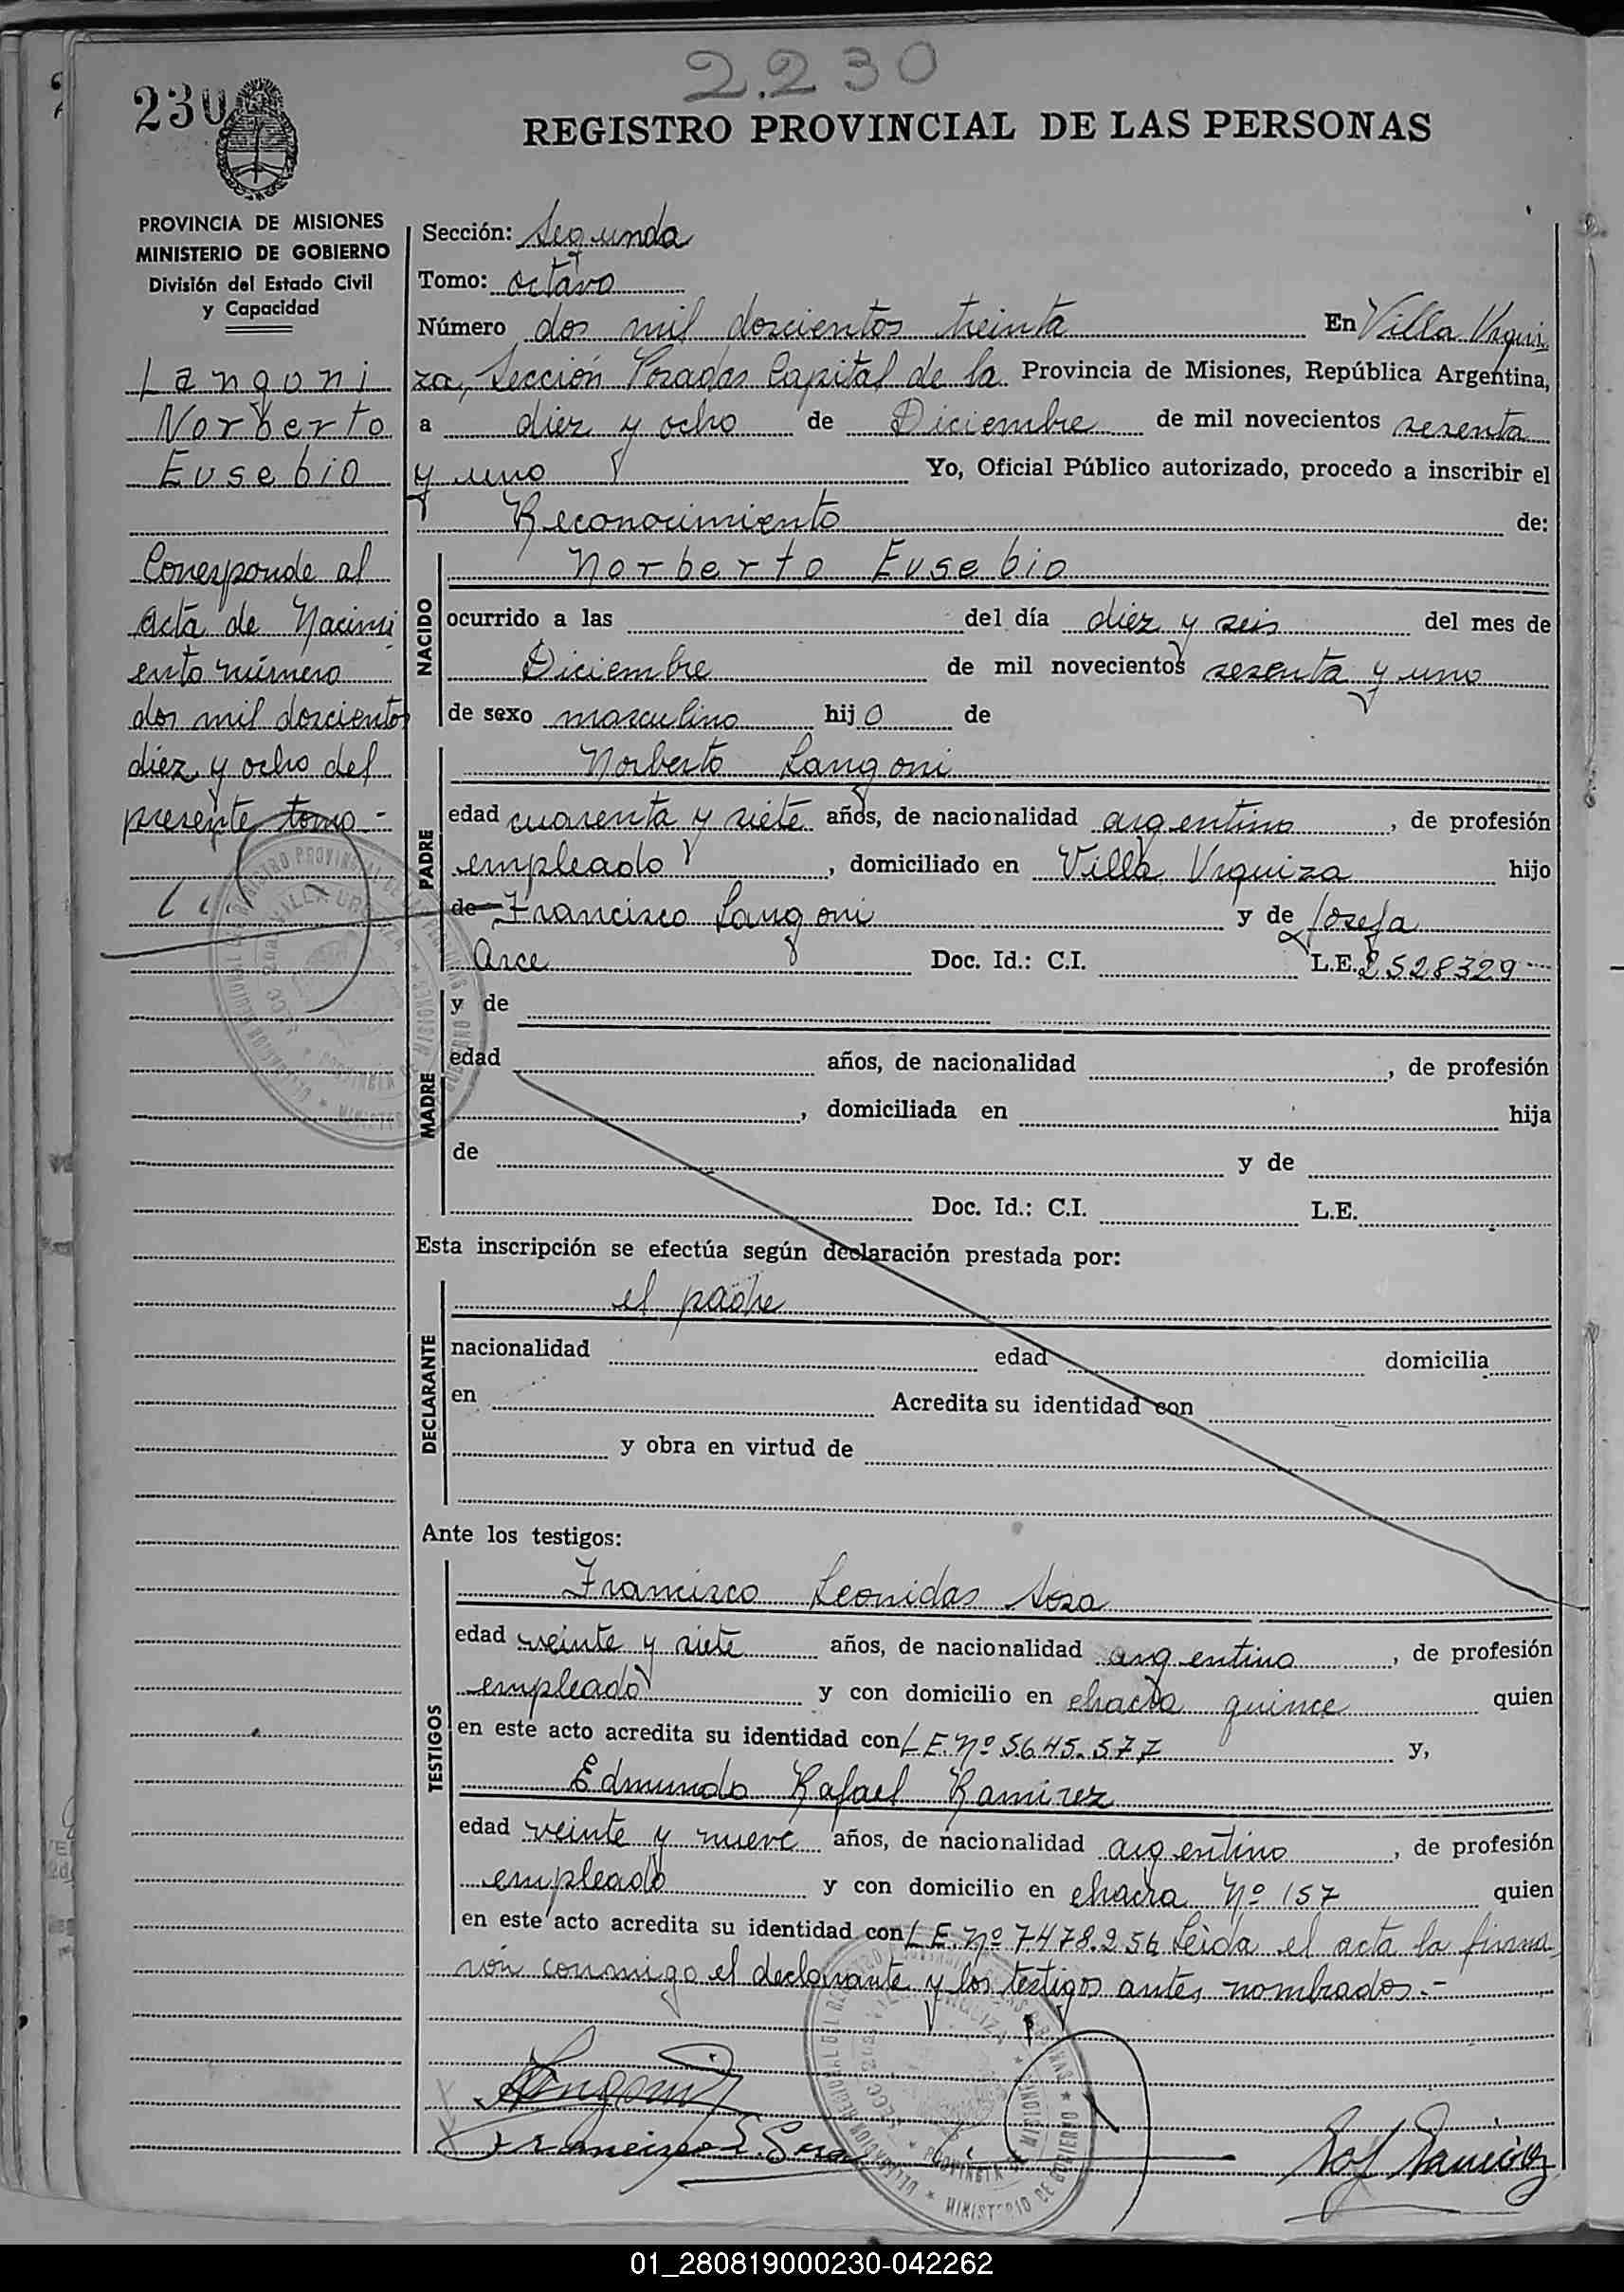 2.230
230
REGISTRO PROVINCIAL DE LAS PERSONAS
PROVINCIA DE MISIONES
MINISTERIO DE GOBIERNO
División del Estado Civil
y Capacidad
Langoni
Norberto
Eusebio
Corresponde al
acta de Nacimi
ento número
dos mil doscientos
diez y ocho del
presente tomo.-
Sección: Segunda
Tomo: octavo
Número dos mil doscientos treinta En Villa Urqui
za, Sección Posadas Capital de la Provincia de Misiones, República Argentina,
a diez y ocho de Diciembre de mil novecientos sesenta
y uno Yo, Oficial Público autorizado, procedo a inscribir el
Reconocimiento de:
NACIDO
Norberto Eusebio
ocurrido a las del día diez y seis del mes de
Diciembre de mil novecientos sesenta y uno
de sexo masculino hijo de
PADRE
Norberto Langoni
edad cuarenta y siete años, de nacionalidad argentino, de profesión
empleado, domiciliado en Villa Urquiza hijo
de Francisco Langoni y de Josefa
Arce Doc. Id.: C.I. L.E. 2528329
MADRE
y de
edad años, de nacionalidad , de profesión
, domiciliada en hija
de y de
Doc. Id.: C.I. L.E.
Esta inscripción se efectúa según declaración prestada por:
DECLARANTE
el padre
nacionalidad edad domicilia
en Acredita su identidad con
y obra en virtud de
Ante los testigos:
TESTIGOS
Francisco Leonidas Sosa
edad veinte y siete años, de nacionalidad argentino, de profesión
empleado y con domicilio en chacra quince quien
en este acto acredita su identidad con L.E. Nº 5.645.577 y,
Edmundo Rafael Ramirez
edad veinte y nueve años, de nacionalidad argentino, de profesión
empleado y con domicilio en chacra Nº 157 quien
en este acto acredita su identidad con L.E. Nº 7.478.256 Leida el acta la firma
rón conmigo el declarante y los testigos antes nombrados.-
Langoni
Francisco L. Sosa
Raf Ramirez
01_280819000230-042262